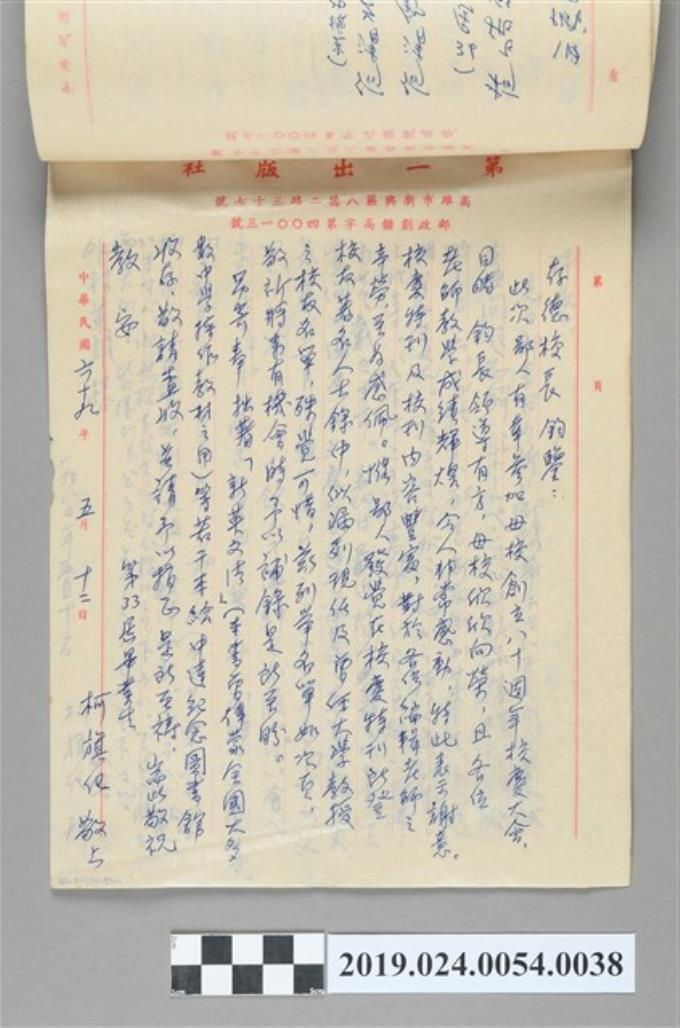 第一出版社
高雄市新興區八德二路三十七號
郵政劃撥儲高字第四〇〇一三號
第　頁
存德校長 鈞鑒：
此次鄙人有幸參加母校創立八十週年校慶大會、
目睹 鈞長領導有方，母校欣欣向榮，且各位
老師教學成績輝煌，令人非常感動，特此表示謝意。
校慶特刊及校刊內容豐富，對於各位編輯老師之
辛勞，至為感佩。惟鄙人發覺在校慶特刊所登
校友著名人士錄中，似漏列現任及曾任大學教授
之校友名單，殊覺可惜，茲列舉名單如次頁，
敬祈將來有機會時，予以補錄是所至盼。
另寄奉拙著「新英文法」（本書曾偉蒙全國大多
數中學採作教材之用）等若干本給中達紀念圖書館
收存，敬請查收，並請予以指正是所至禱，耑此敬祝
教安
第33屆畢業生
柯旗化 敬上
中華民國六十九年五月十二日
2019.024.0054.0038